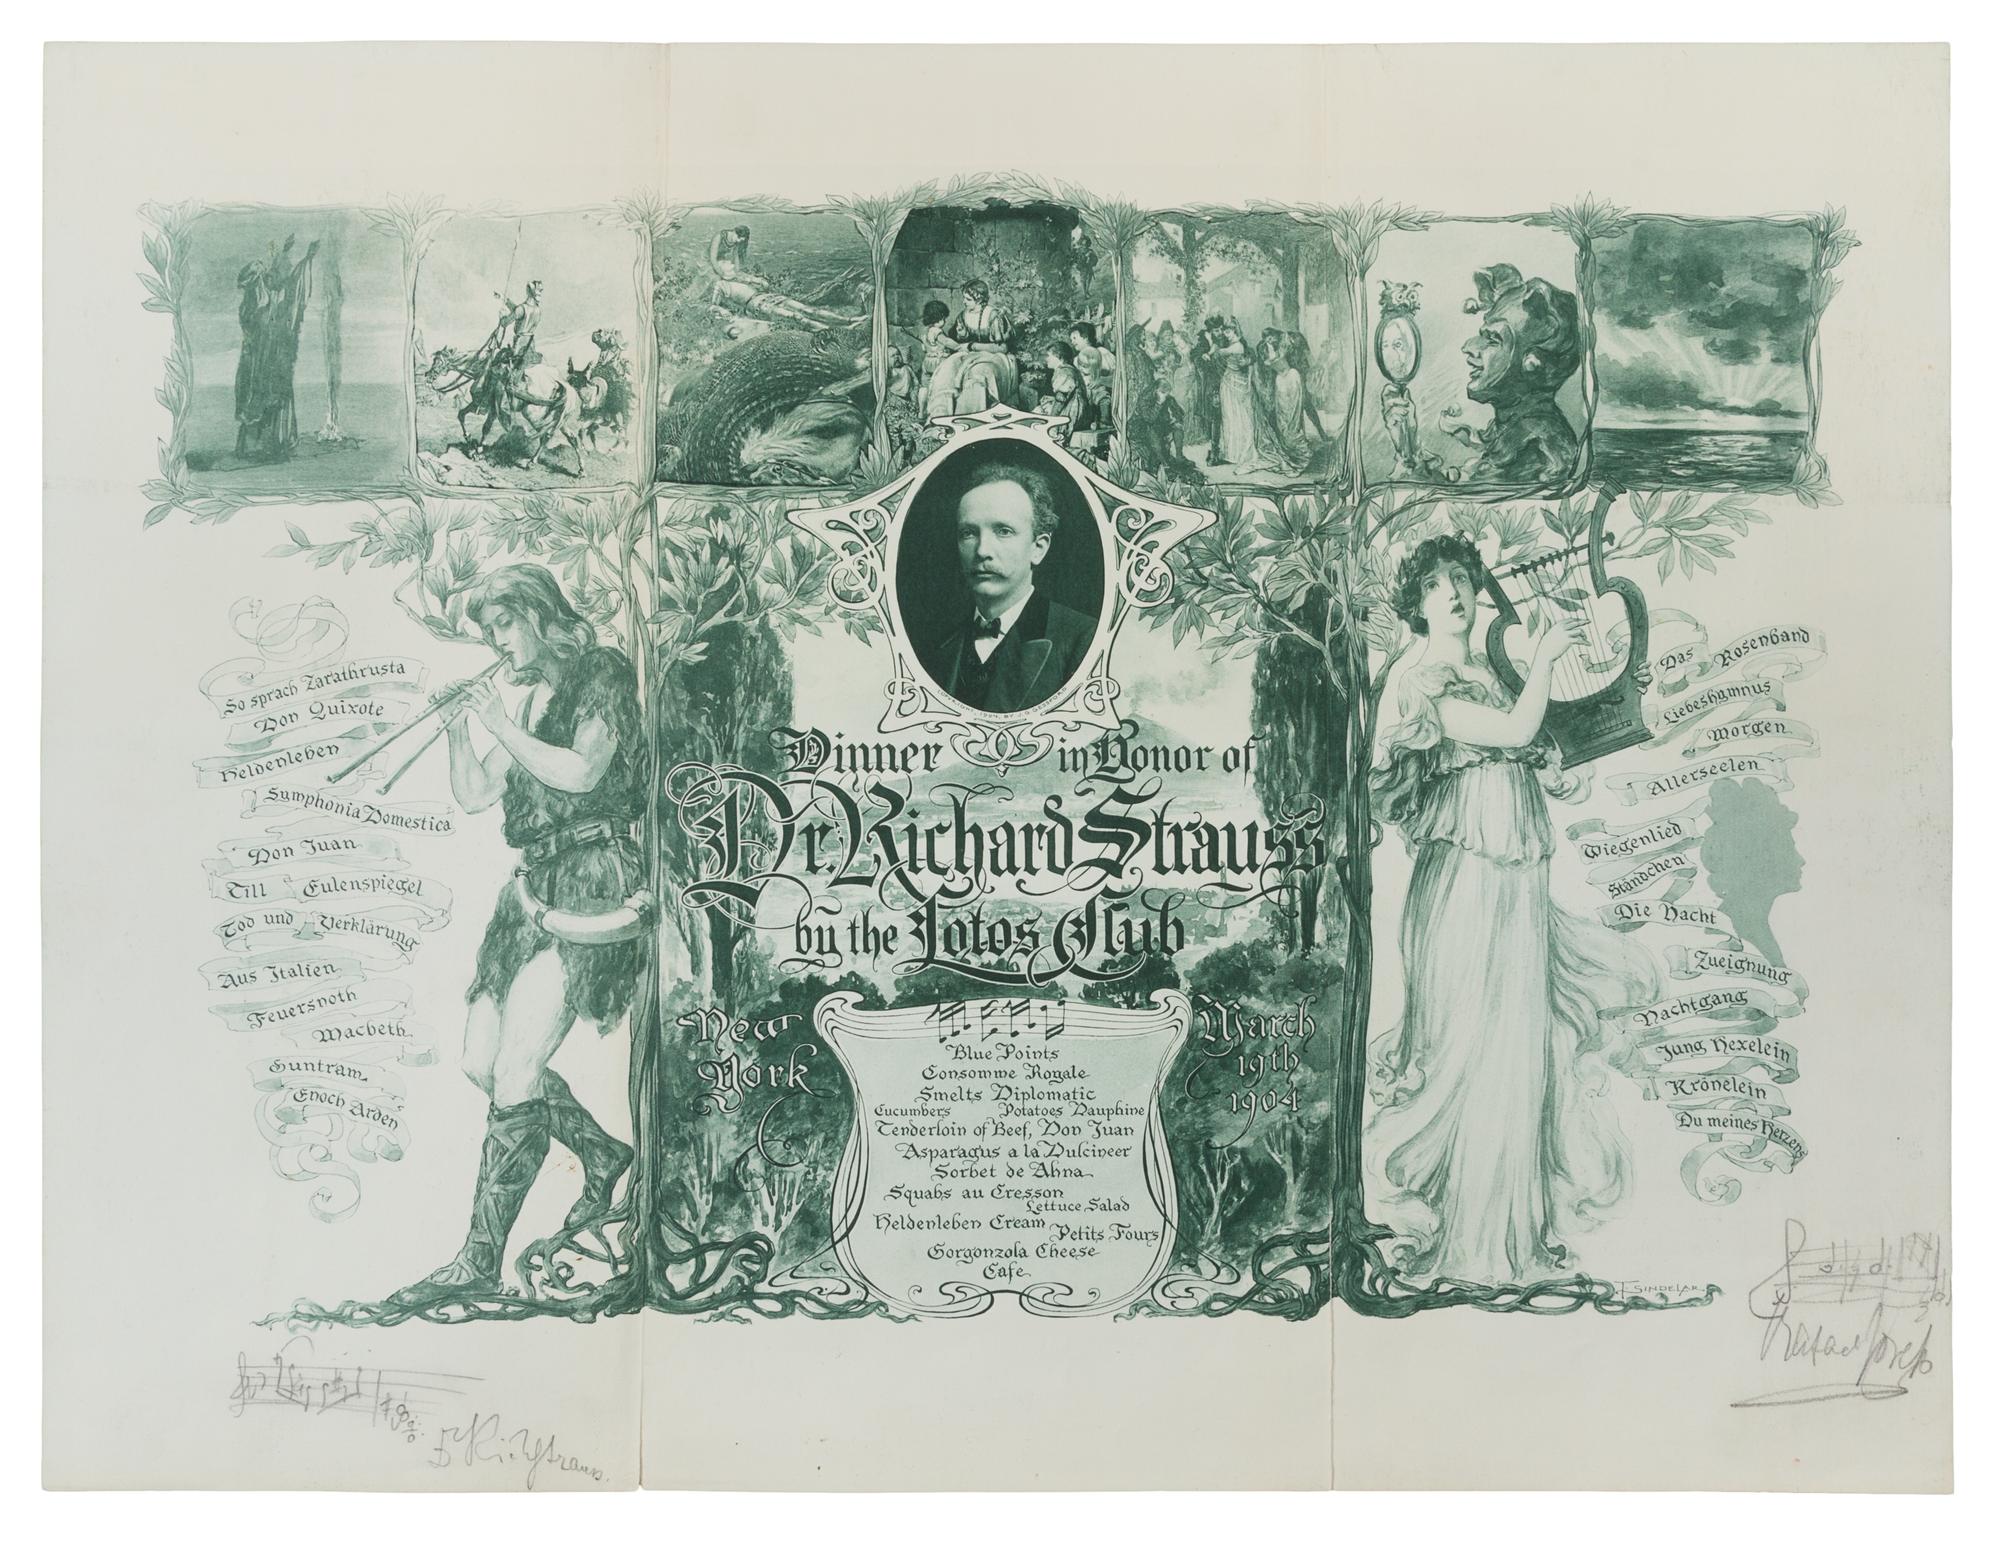 COPYRIGHT, 1904, BY J. G. GESSFORD
Dinner in Honor of
Dr. Richard Strauss
by the Lotos Club
New York
March 19th 1904
MENU
Blue Points
Consomme Royale
Smelts Diplomatic
Cucumbers Potatoes Dauphine
Tenderloin of Beef, Don Juan
Asparagus a la Dulcineer
Sorbet de Ahna
Squabs au Cresson
Lettuce Salad
Heldenleben Cream
Petits Fours
Gorgonzola Cheese
Cafe
So sprach Zarathrusta
Don Quixote
Heldenleben
Symphonia Domestica
Don Juan
Till Eulenspiegel
Tod und Verklärung
Aus Italien
Feuersnoth
Macbeth
Guntram
Enoch Arden
Das Rosenband
Liebeshymnus
Morgen
Allerseelen
Wiegenlied
Ständchen
Die Nacht
Zueignung
Nachtgang
Jung Hexelein
Krönelein
Du meines Herzens
F. SINDELAR
Dr Rich Strauss.
Rafael Joseffy